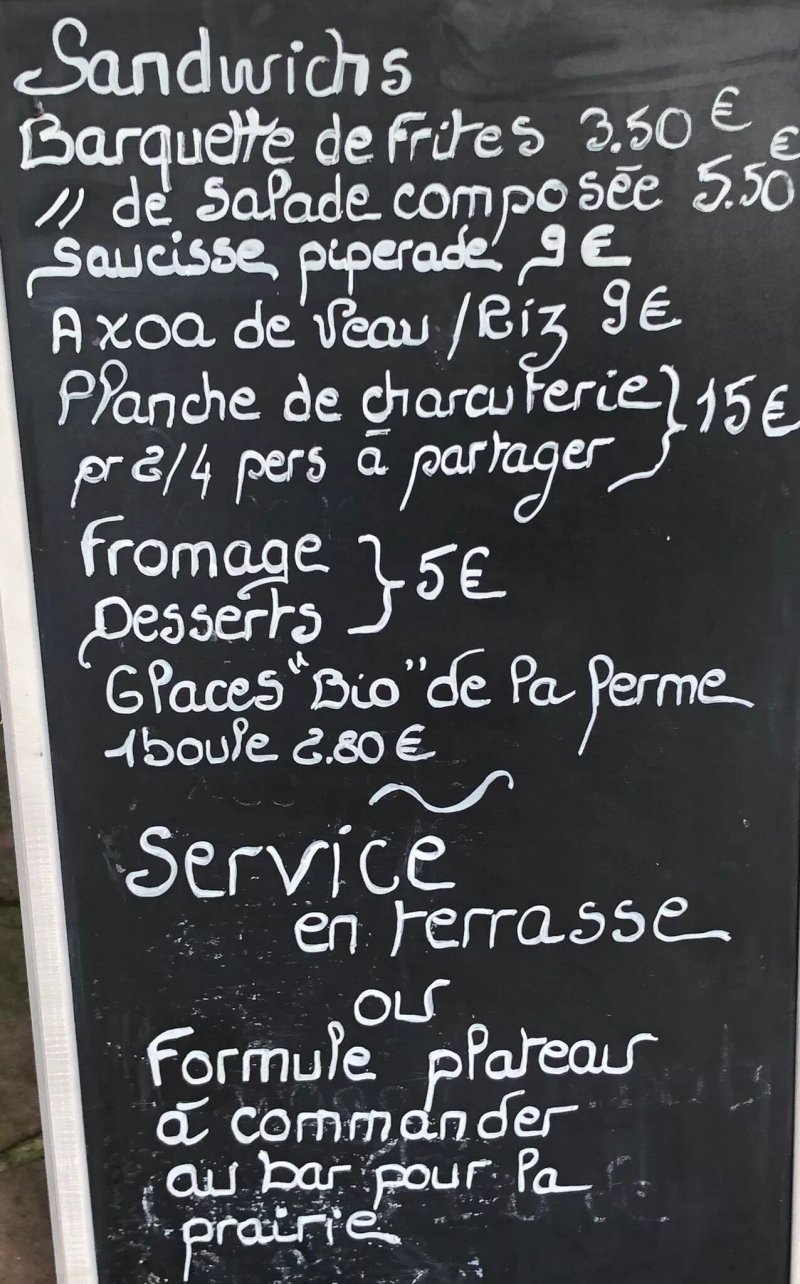 Sandwichs
Barquette de frites 3.50 €
" de salade composée 5.50 €
Saucisse piperade 9 €
Axoa de veau / Riz 9 €
Planche de charcuterie } 15 €
pr 2/4 pers à partager
Fromage } 5 €
Desserts
Glaces "Bio" de la ferme
1 boule 2.80 €
Service
en terrasse
ou
Formule plateau
à commander
au bar pour la
prairie